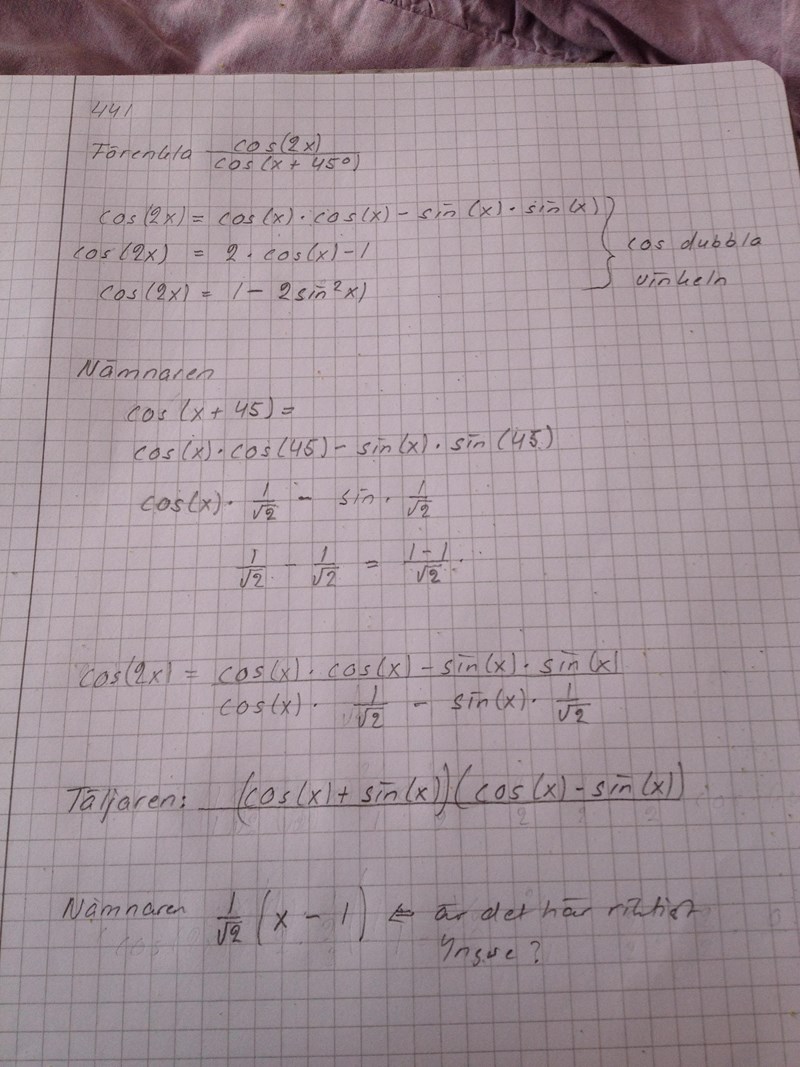 441
Förenkla cos(2x) / cos(x + 45°)
cos(2x) = cos(x) · cos(x) - sin(x) · sin(x)
cos(2x) = 2 · cos(x) - 1
cos(2x) = 1 - 2sin²x)
cos dubbla
vinkeln
Nämnaren
cos(x + 45) =
cos(x) · cos(45) - sin(x) · sin(45)
cos(x) · 1/√2 - sin · 1/√2
1/√2 - 1/√2 = 1-1/√2 ·
cos(2x) = cos(x) · cos(x) - sin(x) · sin(x) / cos(x) · 1/√2 - sin(x) · 1/√2
Täljaren: (cos(x) + sin(x))(cos(x) - sin(x))
Nämnaren 1/√2 (x - 1) ⇐ är det här riktigt
Yngve?